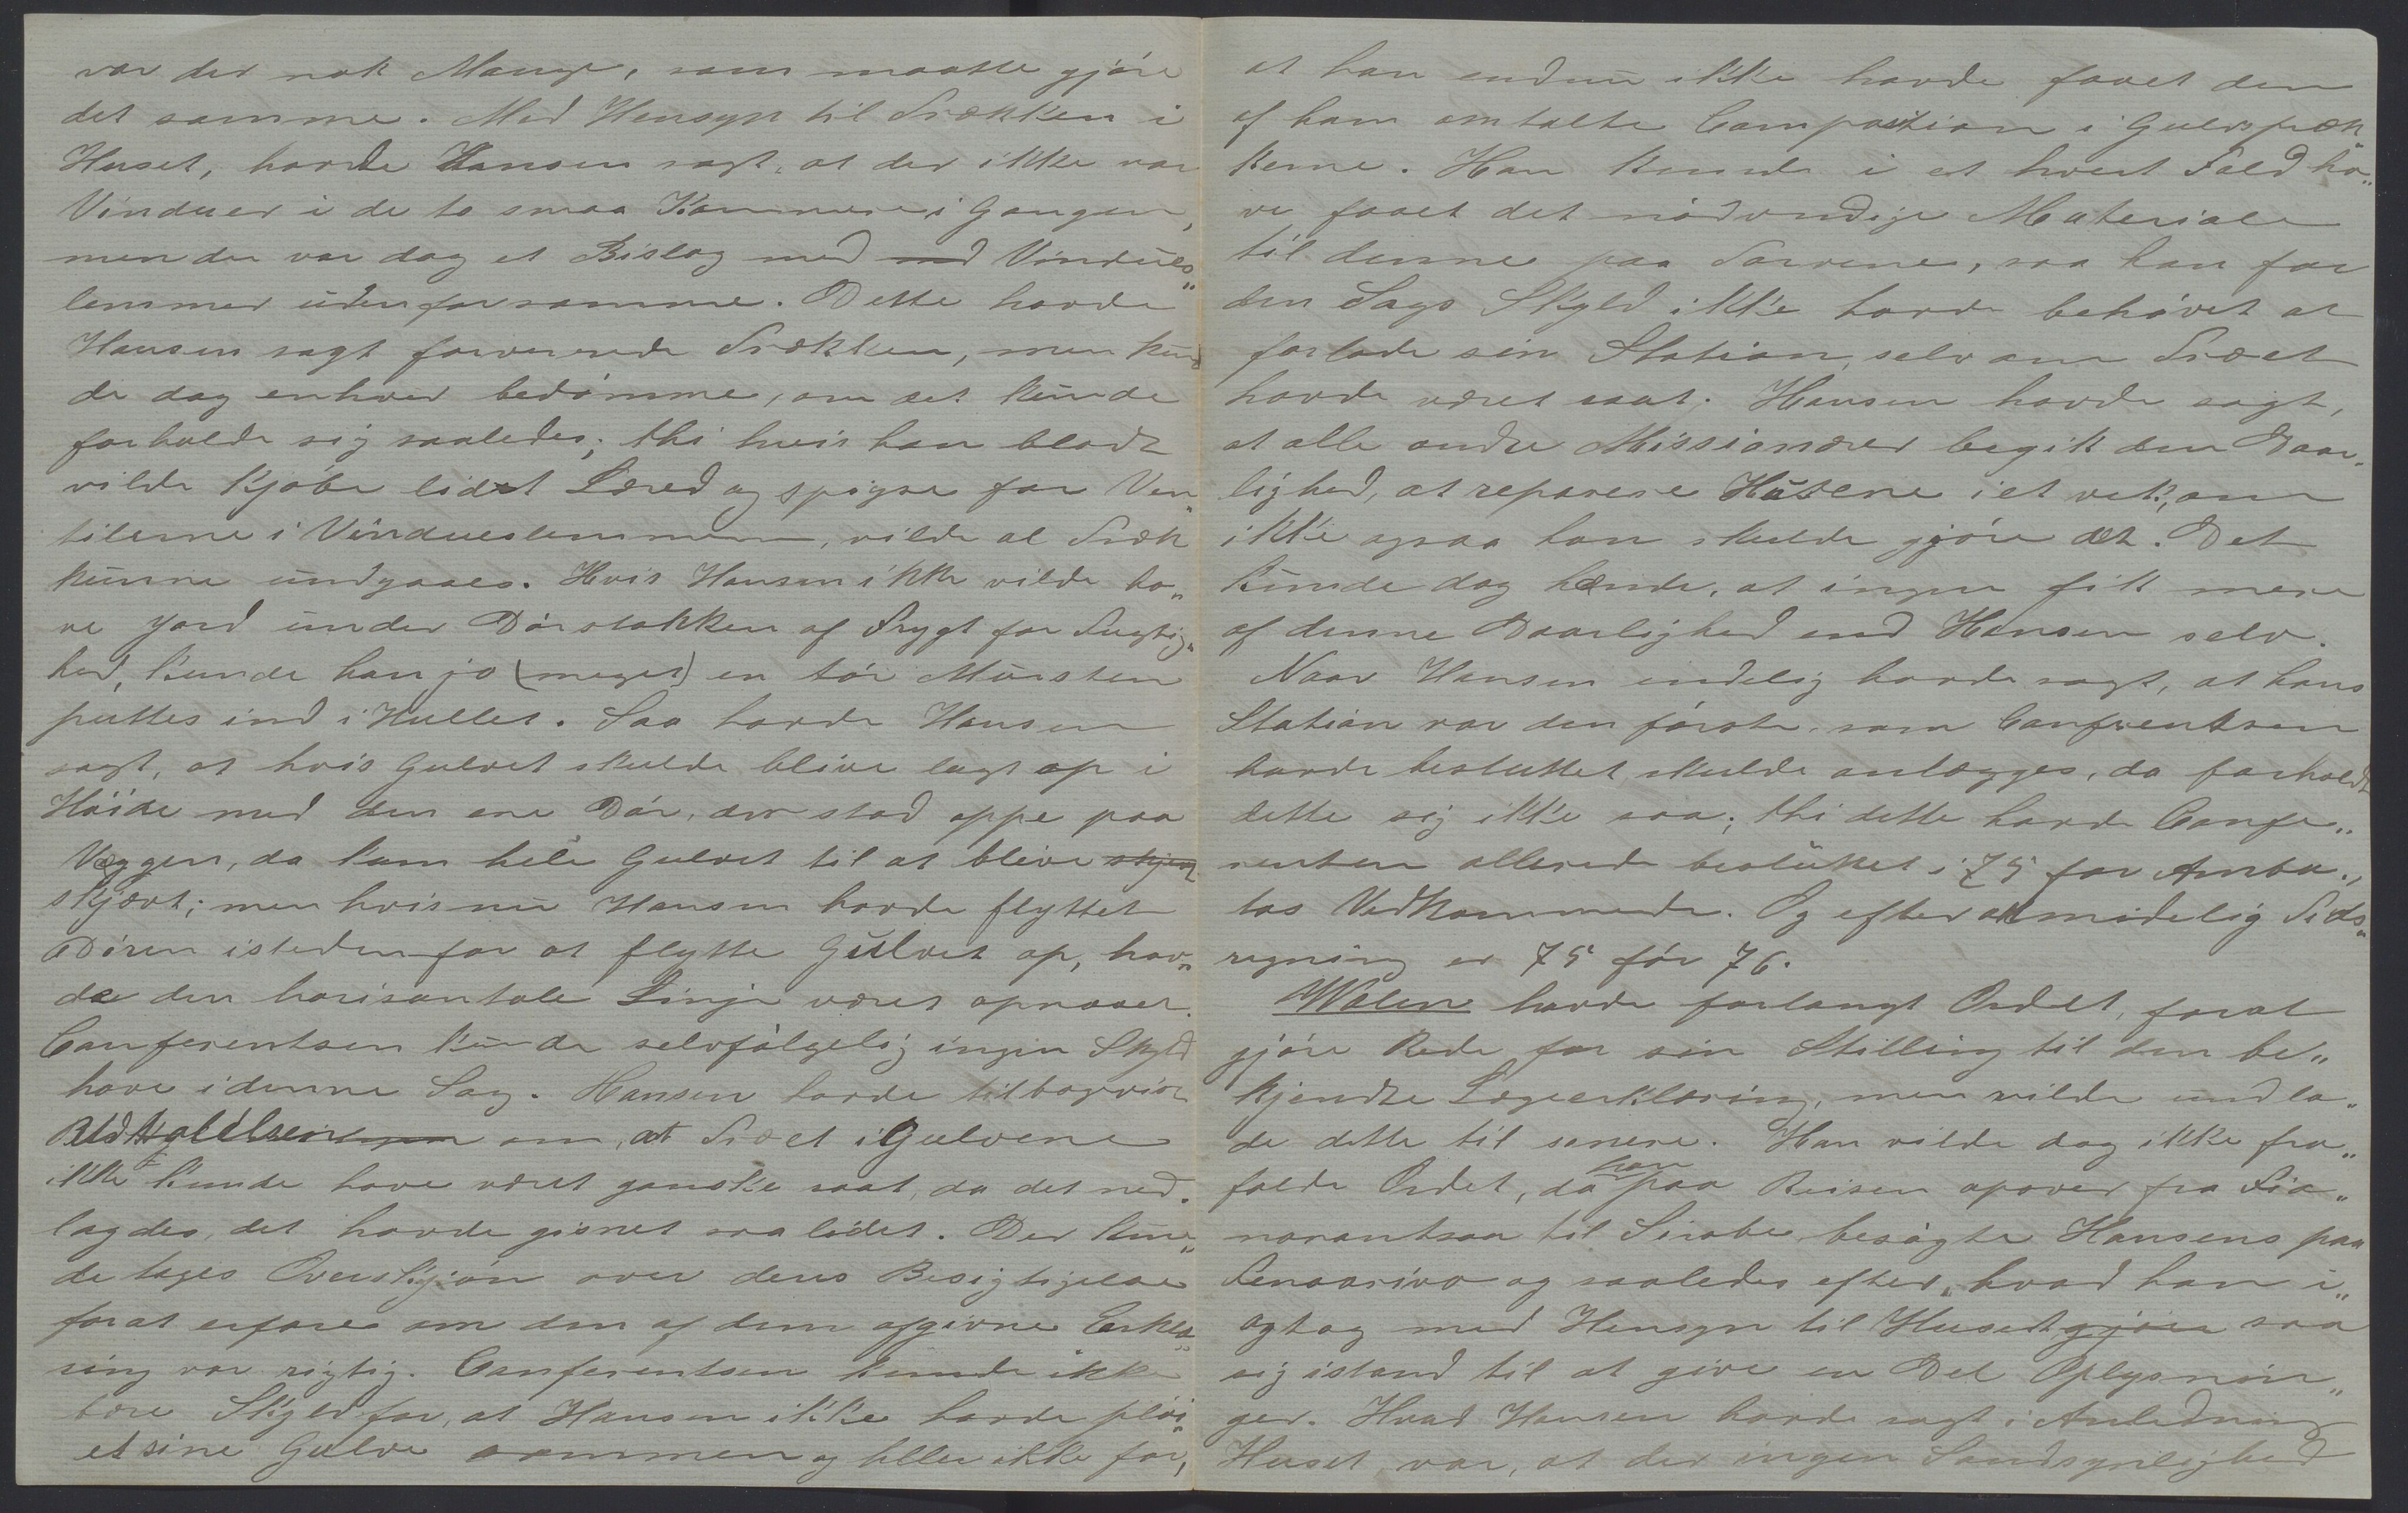 var der nok Mange, som maatte gjøre
det samme. Med Hensyn til Trækken i
Huset, havde Hansen sagt, at der ikke var
Vinduer i de to smaa Kammere i Gangen,
men der var dog et Bislag med med Vindues„
lemmer udenfor samme. Dette havde
Hansen sagt forværrede Trækken, men kun„
de dog enhver bedømme, om det kunde
forholde sig saaledes; thi hvis han blodt
vilde kjøbe lidet Lærred og spigre for Ven„
tilerne i Vindueslemmerne, vilde al Træk
kunne undgaaes. Hvis Hansen ikke vilde ha„
ve Jord under Dørstokken af Frygt for Fugtig„
hed, kunde han jo (meget) en tør Mursten
puttes ind i Hullet. Saa havde Hansen
sagt, at hvis Gulvet skulde blive lagt op i
Høide med den ene Dør, der stod oppe paa
Væggen, da kom hele Gulvet til at blive skjævt
skjævt; men hvis nu Hansen havde flyttet
Døren istedenfor at flytte Gulvet op, hav„
de den horisontale Linje været opnaaet.
Conferentsen kunde selvfølgelig ingen Skyld
have i denne Sag. Hansen havde tilbagevist
om, at Træet i Gulvene
ikke kunde have været ganske vaat, da det ned„
lagdes, det havde gisnet saa lidet. Der kun„
de tages Overskjøn over deres Besigtigelse
forat erfare om den af dem afgivne Erklæ„
ring var rigtig. Conferentsen kunde ikke
bære Skyld for, at Hansen ikke havde pløi„
et sine Gulve sammen og heller ikke for,
at han endnu ikke havde faaet den
af ham omtalte Composition i Gulvspræk„
kerne. Han kunde i et hvert Fald ha„
ve faaet det nødvendige Materiale
til denne paa Torvene, saa han for
den Sags Skyld ikke havde behøvet at
forlade sin Station, selv om Træet
havde været vaat. Hansen havde sagt,
at alle andre Missionærer begik den Daar„
lighed, at reparere Husene i et vek, om
ikke ogsaa han skulde gjøre det. Det
kunde dog hænde, at ingen fik mere
af denne Daarlighed end Hansen selv.
Naar Hansen endelig havde sagt, at hans
Station var den første, som Conferentsen
havde besluttet skulde anlægges, da forholdt
dette sig ikke saa; thi dette havde Confe„
rentsen allerede besluttet i 75 for Amba„
tos Vedkommende. Og efter almindelig Tids„
regning er 75 før 76.
Walen havde forlangt Ordet, forat
gjøre Rede for sin Stilling til den be„
kjendte Lægeerklæring, men vilde undla„
de dette til senere. Han vilde dog ikke fra„
falde Ordet, da han paa Reisen opover fra Fia„
narantsoa til Sirabe, besøgte Hansens paa
Fenoarivo og saaledes efter, hvad han i„
agtog med Hensyn til Huset gjøre saa
sig istand til at give en Del Oplysnin„
ger. Hvad Hansen havde sagt i Anledning
Huset var, at der ingen Sandsynlighed